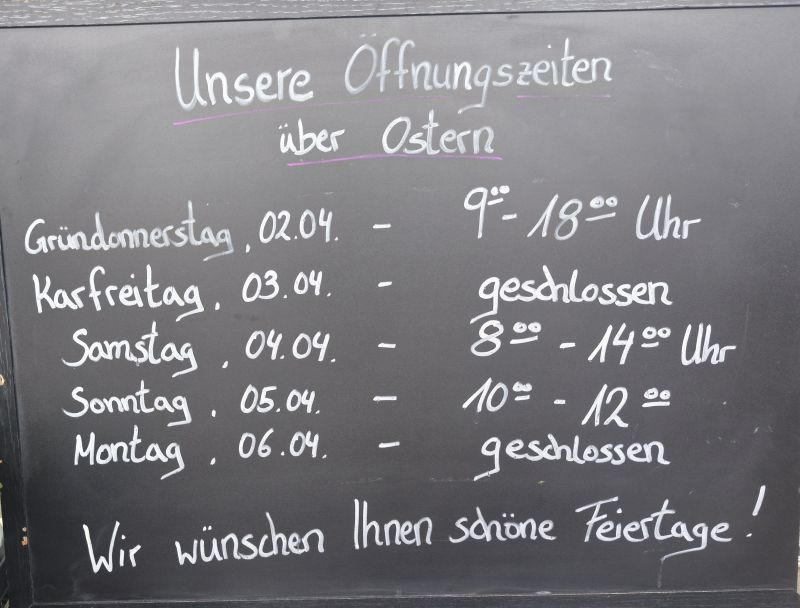 Unsere Öffnungszeiten
über Ostern
Gründonnerstag, 02.04. - 9⁰⁰ - 18⁰⁰ Uhr
Karfreitag, 03.04. - geschlossen
Samstag, 04.04. - 8⁰⁰ - 14⁰⁰ Uhr
Sonntag, 05.04. - 10⁰⁰ - 12⁰⁰
Montag, 06.04. - geschlossen
Wir wünschen Ihnen schöne Feiertage!